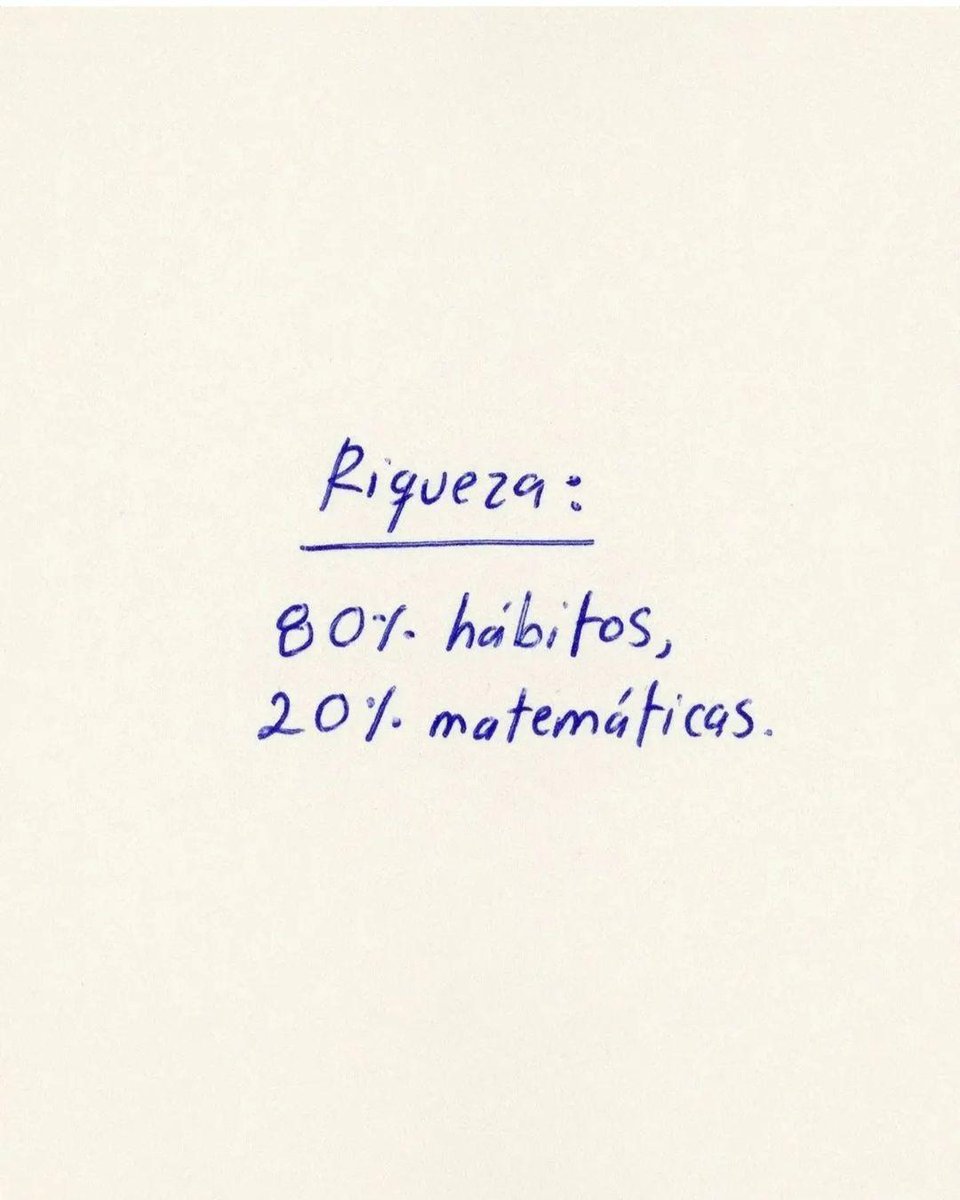 Riqueza:
80% hábitos,
20% matemáticas.